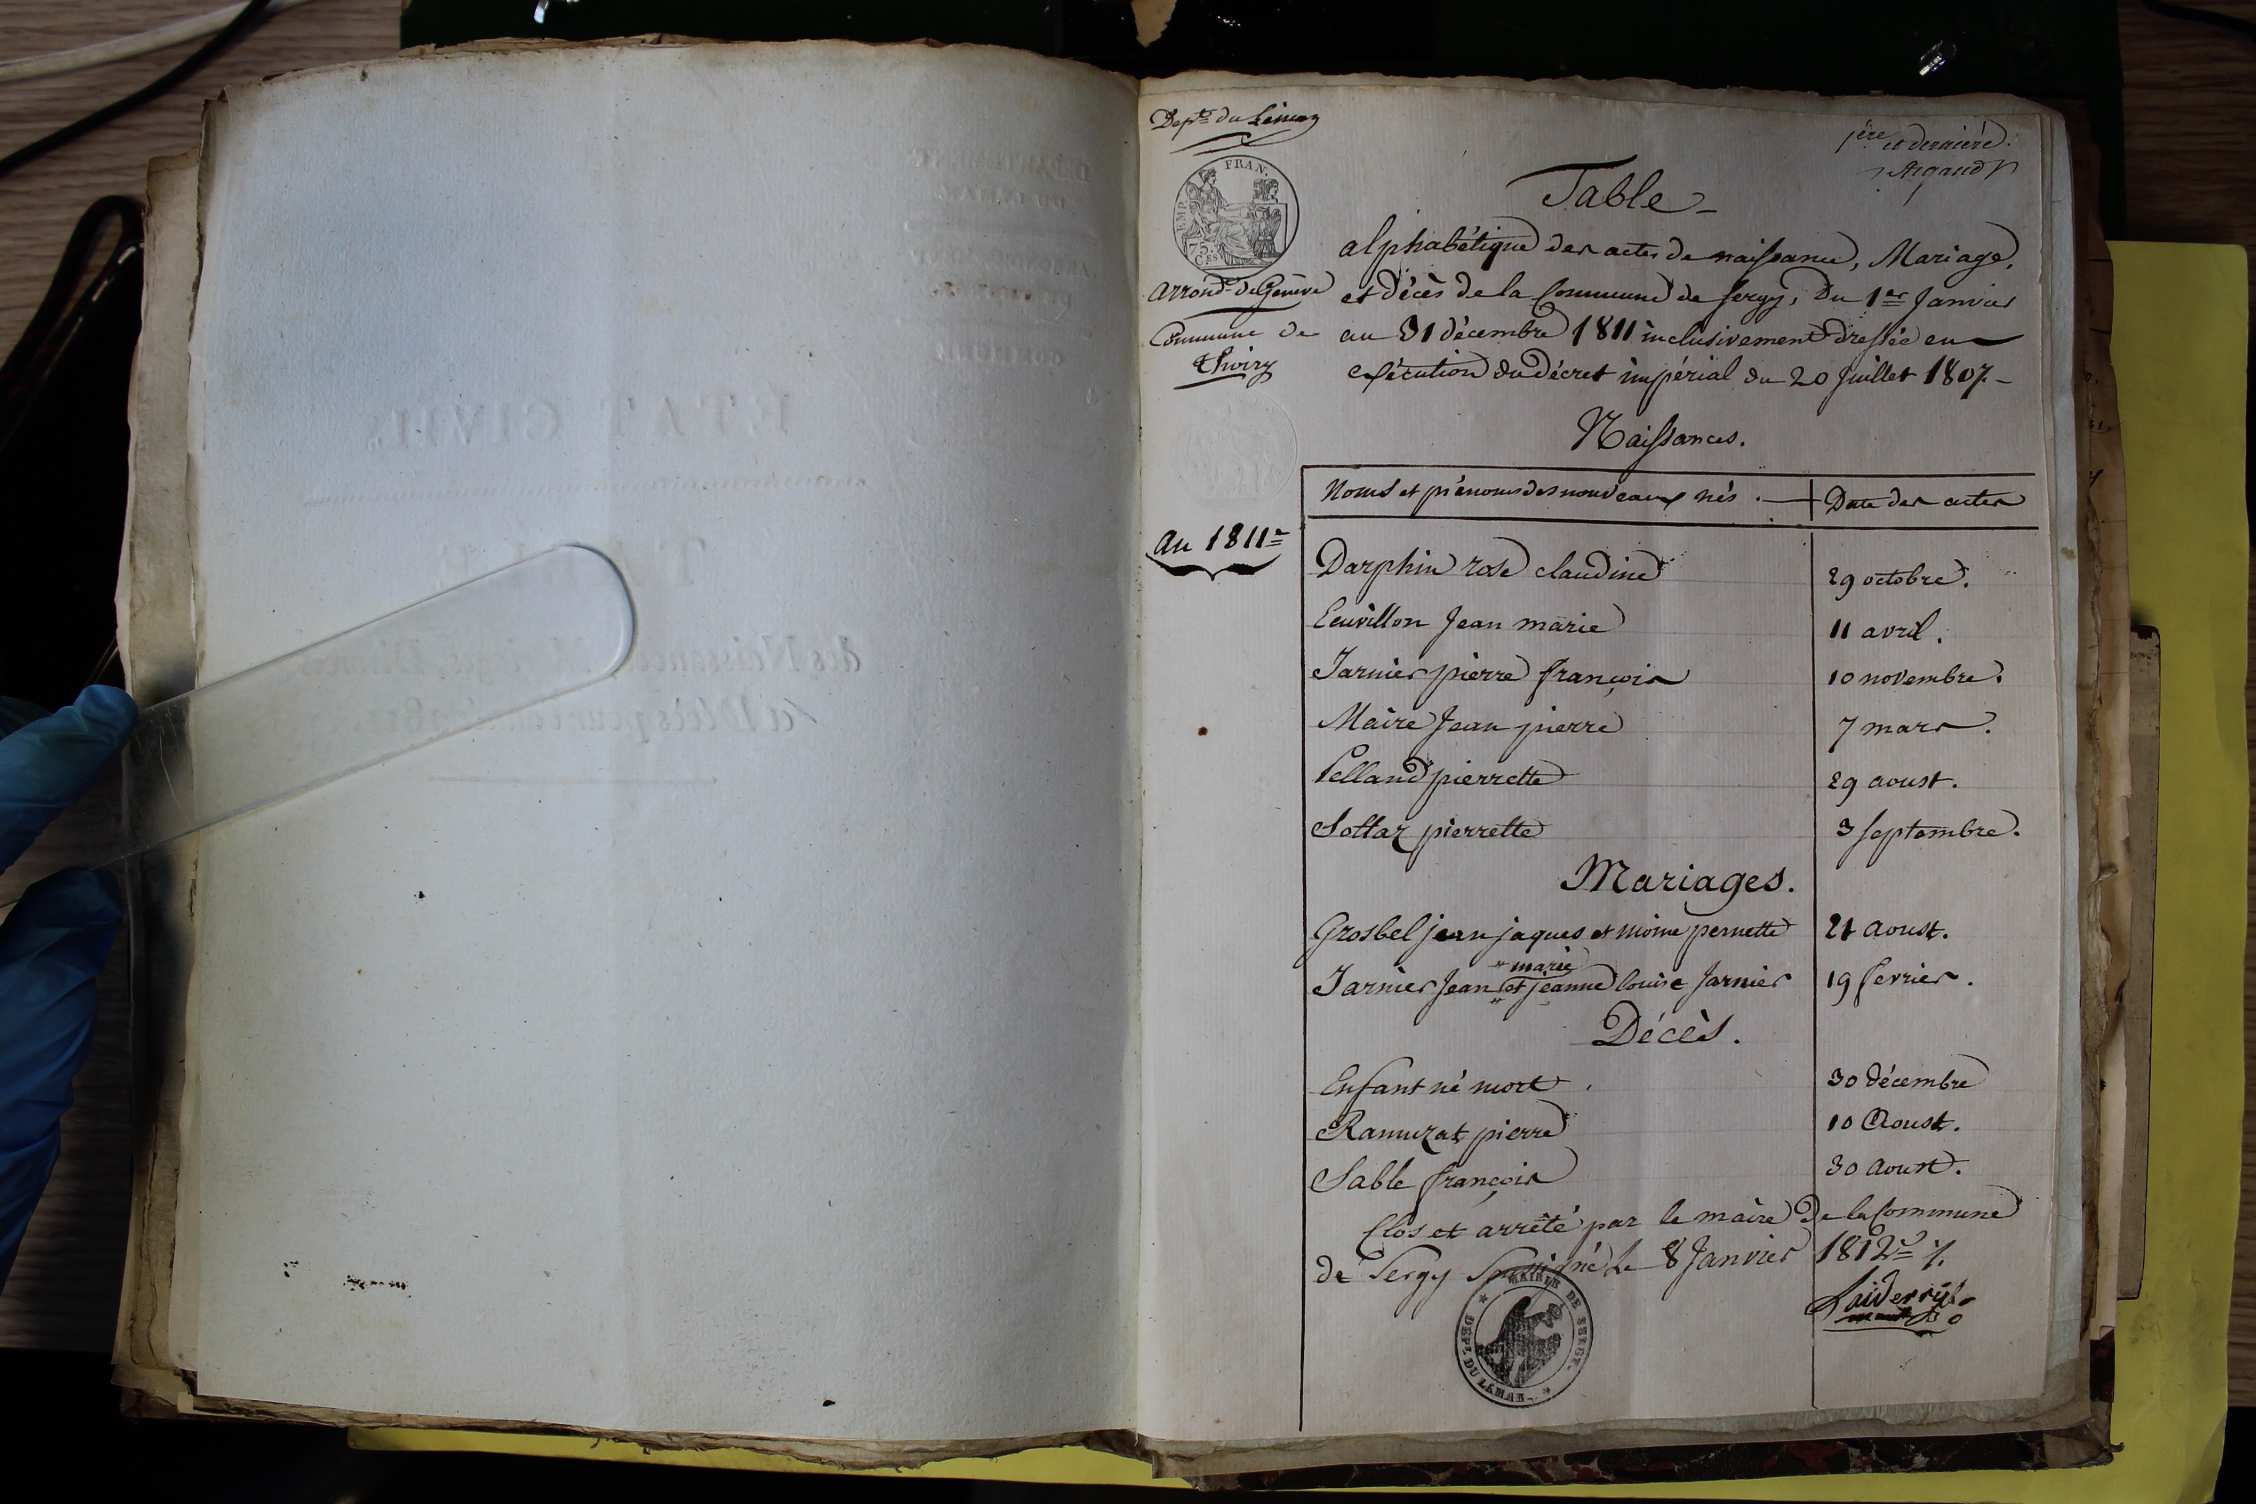 Dept du Léman
1ère et dernière.
Argaud
EMP. FRAN.
75
Ces
Table
alphabétique des actes de naissance, Mariage,
et décès de la Commune de Sergy, Du 1er Janvier
au 31 décembre 1811 inclusivement dressée en
exécution du décret impérial du 20 Juillet 1807.
Arrond. de Genève
Commune de
Thoiry
Naissances.
Noms et prénoms des nouveaux nés. Date des actes
an 1811
Darphin rose claudine 29 octobre.
Euvillon Jean marie 11 avril.
Jarnier pierre françois 10 novembre.
Maire Jean pierre 7 mars.
Pelland pierrette 29 aoust.
Sottaz pierrette 3 septembre.
Mariages.
Grosbel jean jaques et moine pernette 21 Aoust.
marie
Jarnier Jean et jeanne louise Jarnier 19 fevrier.
Décès.
Enfant né mort. 30 décembre
Ramuzat pierre 10 Aoust.
Sable françois 30 Aoust.
Clos et arrêté par le maire de la Commune
de Sergy Soussigné le 8 Janvier 1812
MAIRIE DE SERGY.
DEPT. DU LEMAN
ETAT CIVIL
des Naissances